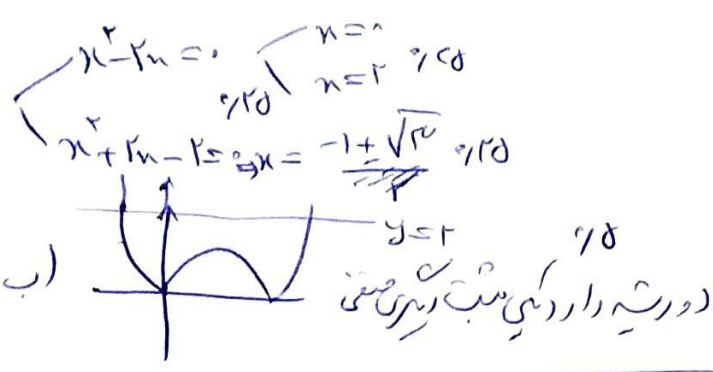 x² - ۲x = ۰ x = ۰
x = ۲ ٪۲۵
٪۲۵
x² + ۲x - ۲ = ۰ ⇒ x = -۱ ± √۳ ٪۲۵
y = ۲ ٪۵
(ب
دو ریشه دارد یکی مثبت دیگری منفی